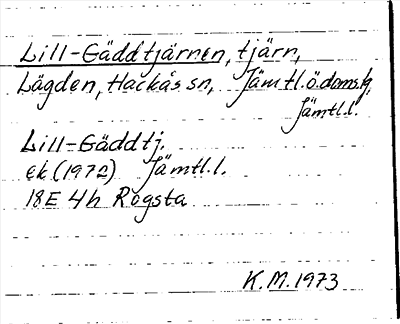 Lill-Gäddtjärnen, tjärn,
Lägden, Hackås sn, Jämtl.ö.doms.g,
Jämtl.l.
Lill-Gäddtj.
ek (1972) Jämtl.l.
18E 4h Rogsta
K.M.1973